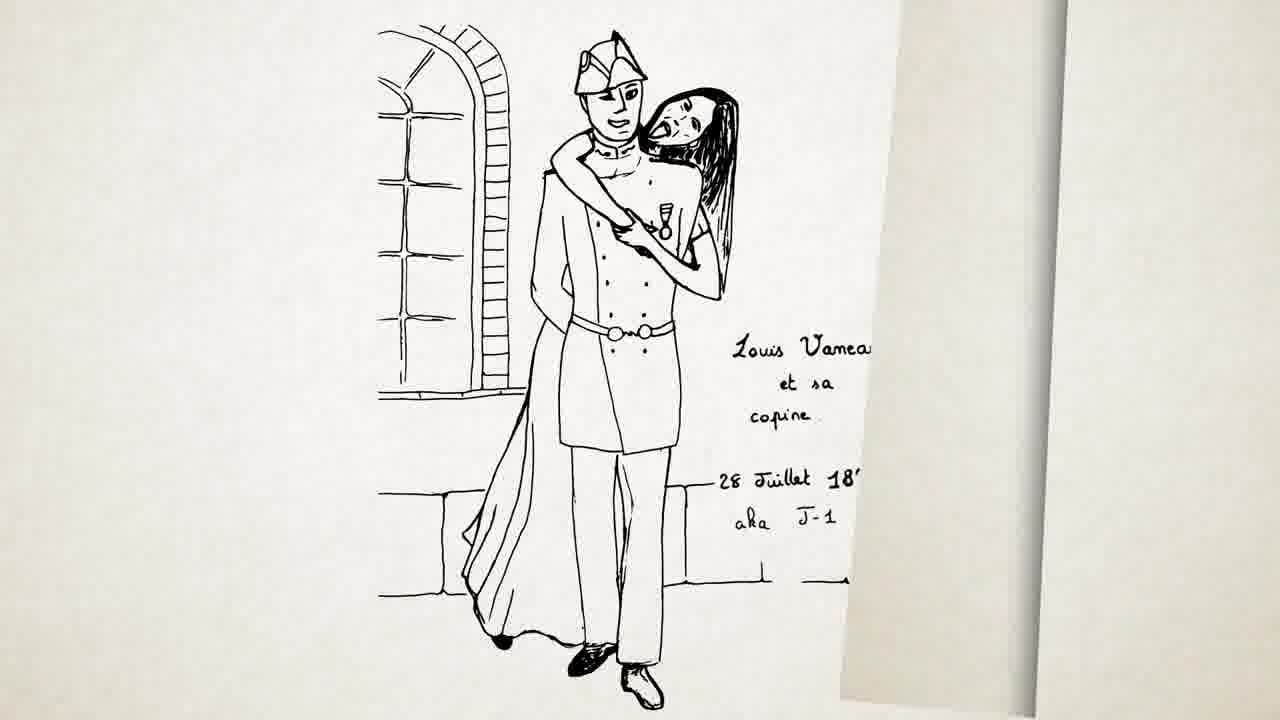 Louis Vanea
et sa
copine.
28 Juillet 18
aka J-1